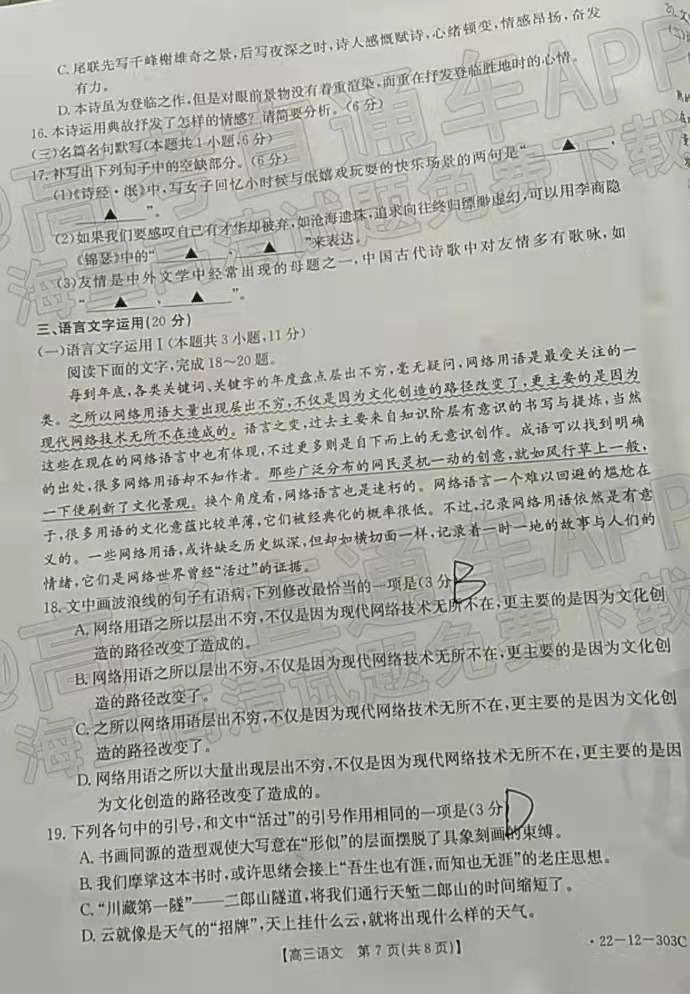 C. 尾联先写千峰榭雄奇之景,后写夜深之时,诗人感慨赋诗,心绪顿变,情感昂扬,奋发
有力。
D. 本诗虽为登临之作,但是对眼前景物没有着重渲染,而重在抒发登临胜地时的心情。
16. 本诗运用典故抒发了怎样的情感?请简要分析。(6分)
(三)名篇名句默写(本题共1小题,6分)
17. 补写出下列句子中的空缺部分。(6分)
(1)《诗经·氓》中,写女子回忆小时候与氓嬉戏玩耍的快乐场景的两句是“ ▲ ,
▲ ”。
(2)如果我们要感叹自已有才华却被弃,如沧海遗珠,追求向往终归缥缈虚幻,可以用李商隐
《锦瑟》中的“ ▲ , ▲ ”来表达。
(3)友情是中外文学中经常出现的母题之一,中国古代诗歌中对友情多有歌咏,如
“ ▲ , ▲ ”。
三、语言文字运用(20分)
(一)语言文字运用Ⅰ(本题共3小题,11分)
阅读下面的文字,完成18~20题。
每到年底,各类关键词、关键字的年度盘点层出不穷,毫无疑问,网络用语是最受关注的一
类。之所以网络用语大量出现层出不穷,不仅是因为文化创造的路径改变了,更主要的是因为
现代网络技术无所不在造成的。语言之变,过去主要来自知识阶层有意识的书写与提炼,当然
这些在现在的网络语言中也有体现,不过更多则是自下而上的无意识创作。成语可以找到明确
的出处,很多网络用语却不知作者。那些广泛分布的网民灵机一动的创意,就如风行草上一般,
一下便刷新了文化景观。换个角度看,网络语言也是速朽的。网络语言一个难以回避的尴尬在
于,很多用语的文化意蕴比较单薄,它们被经典化的概率很低。不过,记录网络用语依然是有意
义的。一些网络用语,或许缺乏历史纵深,但却如横切面一样,记录着一时一地的故事与人们的
情绪,它们是网络世界曾经“活过”的证据。
18. 文中画波浪线的句子有语病,下列修改最恰当的一项是(3分 B
A. 网络用语之所以层出不穷,不仅是因为现代网络技术无所不在,更主要的是因为文化创
造的路径改变了造成的。
B. 网络用语之所以层出不穷,不仅是因为现代网络技术无所不在,更主要的是因为文化创
造的路径改变了。
C. 之所以网络用语层出不穷,不仅是因为现代网络技术无所不在,更主要的是因为文化创
造的路径改变了。
D. 网络用语之所以大量出现层出不穷,不仅是因为现代网络技术无所不在,更主要的是因
为文化创造的路径改变了造成的。
19. 下列各句中的引号,和文中“活过”的引号作用相同的一项是(3分 D
A. 书画同源的造型观使大写意在“形似”的层面摆脱了具象刻画的束缚。
B. 我们摩挲这本书时,或许思绪会接上“吾生也有涯,而知也无涯”的老庄思想。
C. “川藏第一隧”——二郎山隧道,将我们通行天堑二郎山的时间缩短了。
D. 云就像是天气的“招牌”,天上挂什么云,就将出现什么样的天气。
【高三语文 第7页(共8页)】
·22-12-303C